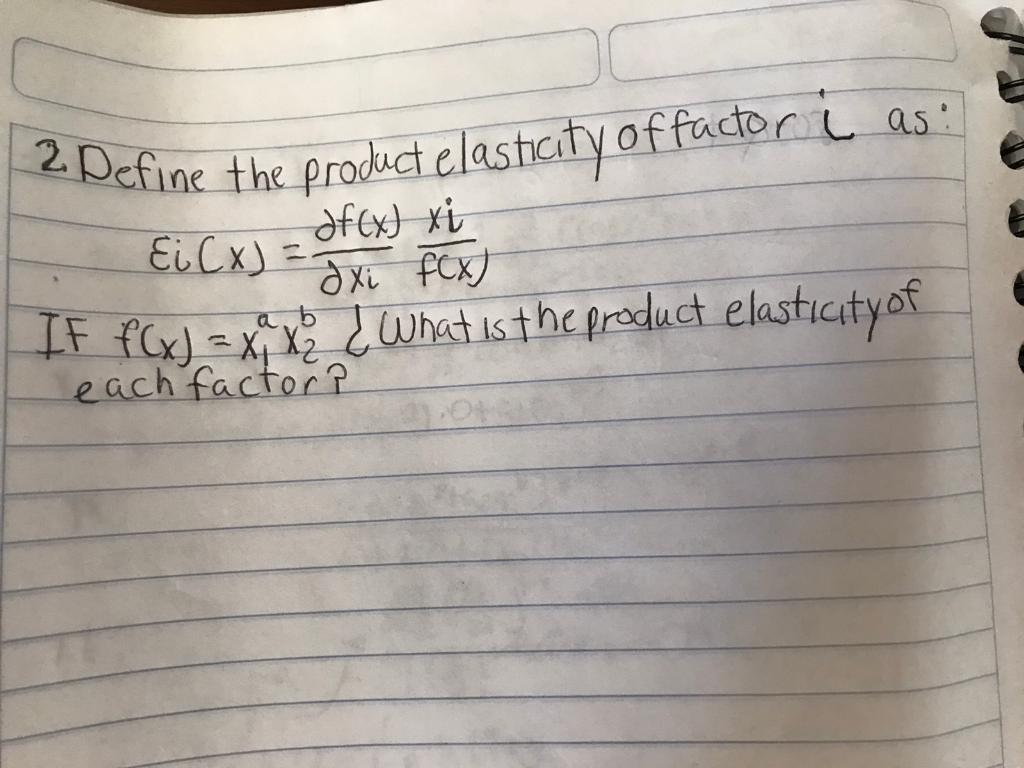 2. Define the product elasticity of factor i as:
εi(x) = ∂f(x)/∂xi xi/f(x)
IF f(x) = x₁ᵃ x₂ᵇ ¿ What is the product elasticity of
each factor?